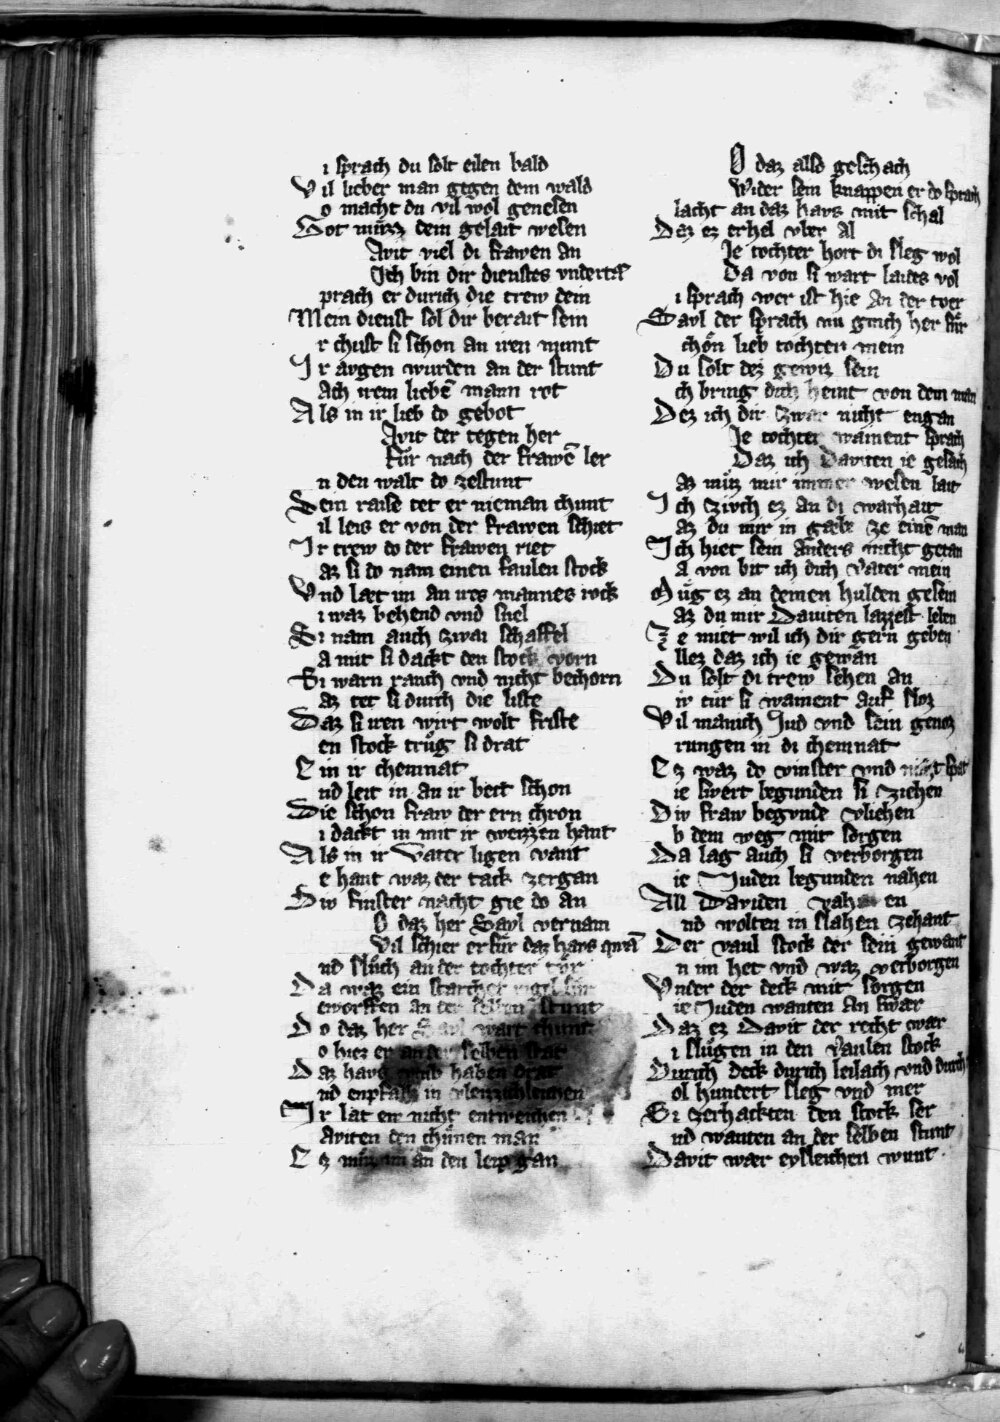 i sprach du solt eilen bald
Vil lieber man gegen dem wald
o macht du vil wol genesen
Got müzz dein gelait wesen
Avit viel di frawen an
Ich bin dir dienstes vndertā
prach er durich die trew dein
Mein dienst sol dir berait sein
r chust si schon an iren munt
Ir augen wurden an der stunt
ach irem liebē mann rot
Als in ir lieb do gebot
Avit der tegen her
Für nach der frawē ler
n den walt do zestunt
Dein raise tet er nieman chunt
il leis er von der frawen schiet
Ir trew do der frawen riet
az si do nam einen faulen stock
Vnd læt im an irs mannes rock
i waz behend vnd snel
Si nam auch zwai schaffel
a mit si dackt den stock vorn
Si warn rauch vnd nicht bechorn
az tet si durch die liste
Daz si iren wirt wolt friste
en stock trůg si drat
Ein ir chemnat
nd leit in an ir bett schon
Die schon fraw der ern chron
i dackt in mit ir weizzen hant
Als in ir Vater ligen vant
e hant waz der tack zergan
Div finster nacht gie do an
O daz her Sayl vernam
Vil schier er für daz havs qwā
nd slůch an der tochter tür
Da waz ein starcher rigel für
eworffen an der selben stunt
Do daz her Sayl wart chunt
o hiez er an der selben stat
Daz havs vmb haben drat
nd enpfalh in
Ir lat eu nicht entweichen
aviten den chünen man
Ez müz im an den leip gan
O daz alsd geschach
Wider sein knappen er do sprach
lacht an daz havs mit schal
Daz ez erhel vber al
Je tochter hort di sleg wol
Da von si wart laides vol
i sprach wer ist hie an der tver
Sayl der sprach nu ginch her für
chön lieb tochter mein
Du solt dez gewiz sein
ch bring dich heint von dem man
Dez ich dir zwar nicht engan
Je tochter wainent sprach
Daz ich Daviten ie gesach
az müz mir immer wesen lait
Ich zivch ez an di warhait
az du mir in gæbt ze einē man
Ich hiet sein anders nicht getan
a von bit ich dich vater mein
Müg ez an deinen hulden gesein
az du mir Daviten lazzest leben
Ze miet wil ich dir gern geben
llez daz ich ie gewan
Du solt di trew sehen an
ir tür si wainent auf sloz
Vil manich Jud vnd sein genoz
rungen in di chemnat
Ez waz do vinster vnd spat
ie swert begunden si ziehen
Div fraw begvnde vliehen
b dem weg mit sorgen
Da lag auch si verborgen
ie Juden begunden nahen
All Daviden vahen
nd wolten in slahen zehant
Der vaul stock der sein gewant
n im het vnd waz verborgen
Vnder der deck mit sorgen
ie Juden wanten an swær
Daz ez Davit der recht wær
i slůgen in den vaulen stock
Durch deck durch leilach vnd durch
ol hundert sleg vnd mer
Si zerhackten den stock ser
nd wanten an der selben stunt
Davit wær eysleichen wunt